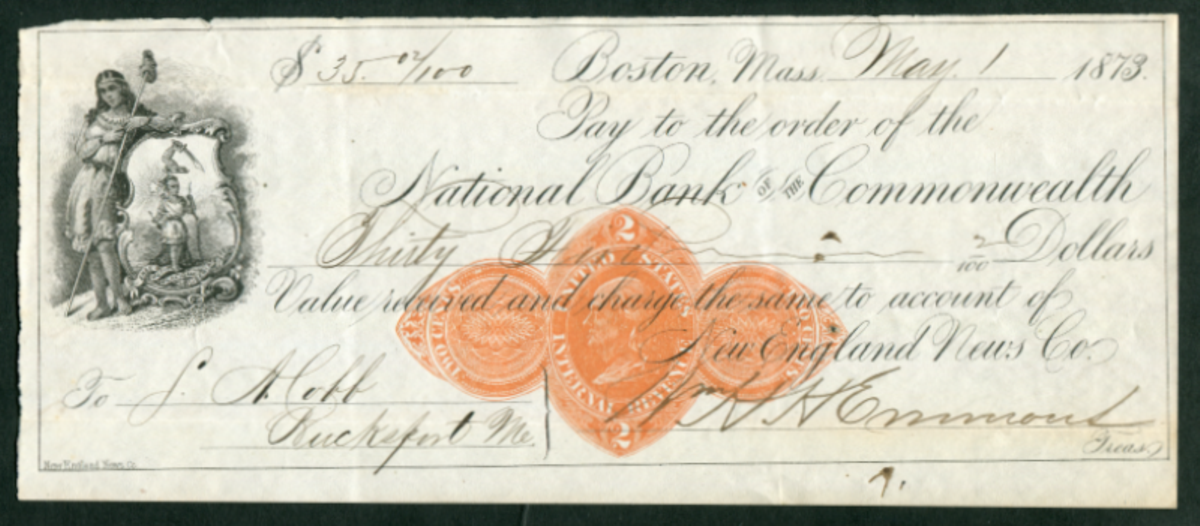 $ 35. 02/100 Boston, Mass. May. 1 1873.
Pay to the order of the
National Bank OF THE Commonwealth
Thirty Five 2/100 Dollars
Value received and charge the same to account of
New England News Co.
To S. A. Cobb
Bucksport Me.
Wm H. H. Emmons
Treas.
New England News Co.
2
UNITED STATES
INTERNAL REVENUE
TWO CENTS
2